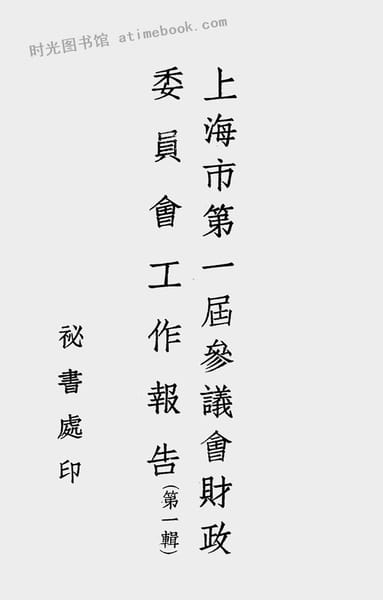 时光图书馆 atimebook.com
上海市第一屆參議會財政
委員會工作報告(第一輯)
祕書處印